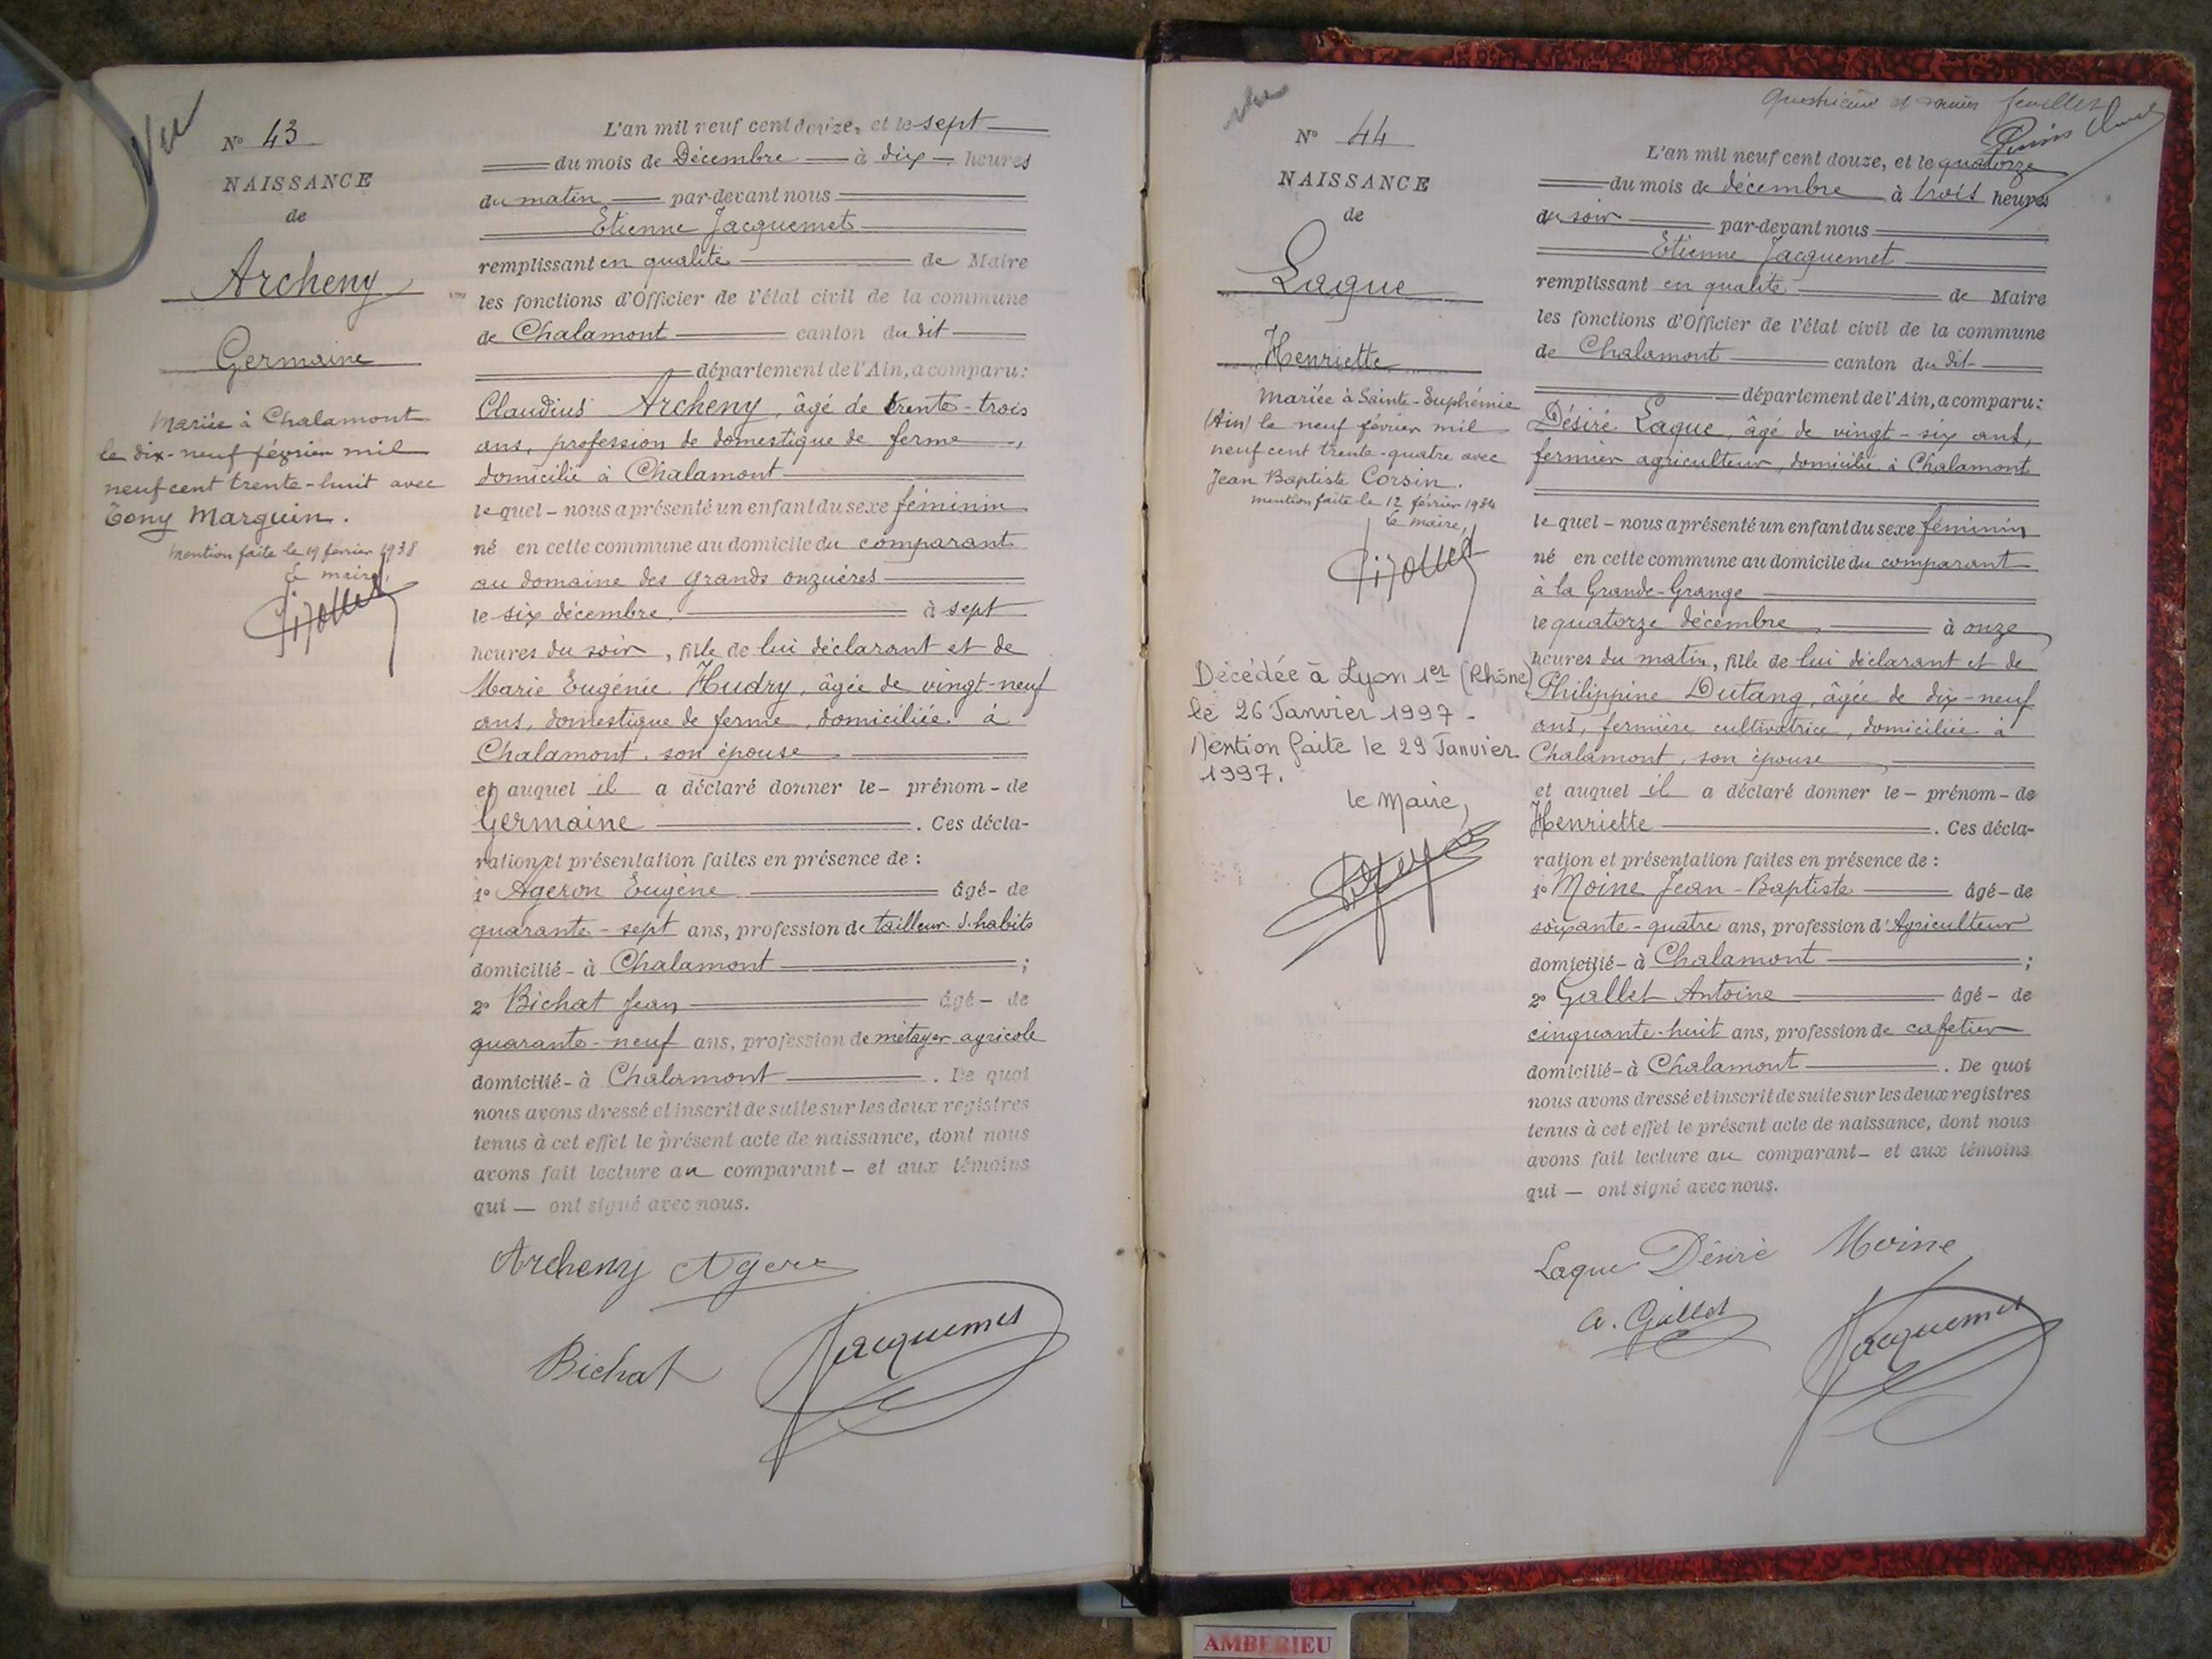 Vu
N° 43
NAISSANCE
de
Archeny
Germaine
Mariée à Chalamont
le dix-neuf février mil
neuf cent trente-huit avec
Tony Marguin.
Mention faite le 19 février 1938
le maire,
L'an mil neuf cent douze, et le sept
du mois de Décembre à dix heures
du matin par-devant nous
Etienne Jacquemet
remplissant en qualité de Maire
les fonctions d'Officier de l'état civil de la commune
de Chalamont canton du dit
département de l'Ain, a comparu:
Claudius Archeny, âgé de trente-trois
ans, profession de domestique de ferme,
domicilié à Chalamont
lequel - nous a présenté un enfant du sexe féminin
né en cette commune au domicile du comparant
au domaine des grands onzuères
le six décembre à sept
heures du soir, fille de lui déclarant et de
Marie Eugénie Hudry, âgée de vingt-neuf
ans, domestique de ferme, domiciliée à
Chalamont, son épouse
et auquel il a déclaré donner le - prénom - de
Germaine. Ces décla-
ration et présentation faites en présence de :
1° Ageron Eugène âgé - de
quarante-sept ans, profession de tailleur d'habits
domicilié - à Chalamont ;
2° Bichat Jean âgé - de
quarante-neuf ans, profession de métayer agricole
domicilié - à Chalamont. De quoi
nous avons dressé et inscrit de suite sur les deux registres
tenus à cet effet le présent acte de naissance, dont nous
avons fait lecture au comparant - et aux témoins
qui — ont signé avec nous.
Archeny Ageron
Bichat Jacquemet
feuillet
N° 44
NAISSANCE
de
Laque
Henriette
Mariée à Sainte-Euphémie
(Ain) le neuf février mil
neuf cent trente-quatre avec
Jean Baptiste Corsin.
mention faite le 12 février 1934
le maire,
Décédée à Lyon 1er (Rhône)
le 26 Janvier 1997 -
Mention faite le 29 Janvier
1997.
le Maire,
L'an mil neuf cent douze, et le quatorze
du mois de décembre à trois heures
du soir par-devant nous
Etienne Jacquemet
remplissant en qualité de Maire
les fonctions d'Officier de l'état civil de la commune
de Chalamont canton du dit
département de l'Ain, a comparu:
Désiré Laque, âgé de vingt-six ans,
fermier agriculteur, domicilié à Chalamont
lequel - nous a présenté un enfant du sexe féminin
né en cette commune au domicile du comparant
à la Grande-Grange
le quatorze décembre à onze
heures du matin, fille de lui déclarant et de
Philippine Dutang, âgée de dix-neuf
ans, fermière cultivatrice, domiciliée à
Chalamont, son épouse
et auquel il a déclaré donner le - prénom - de
Henriette. Ces décla-
ration et présentation faites en présence de :
1° Moine Jean-Baptiste âgé - de
soixante-quatre ans, profession d'Agriculteur
domicilié - à Chalamont ;
2° Gallet Antoine âgé - de
cinquante-huit ans, profession de cafetier
domicilié - à Chalamont. De quoi
nous avons dressé et inscrit de suite sur les deux registres
tenus à cet effet le présent acte de naissance, dont nous
avons fait lecture au comparant - et aux témoins
qui — ont signé avec nous.
Laque Désiré Moine
A. Gallet Jacquemet
AMBERIEU